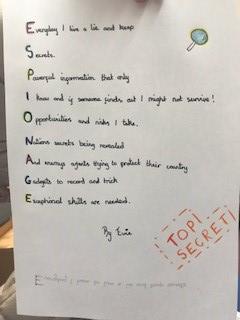 Everyday I live a lie and keep
Secrets.
Powerful information that only
I know and if someone finds out I might not survive!
Opportunities and risks I take.
Nations secrets being revealed
And enemys agents trying to protect their country
Gadgets to record and trick
Exceptional skills are needed.
By Evie
TOP!
SECRET!